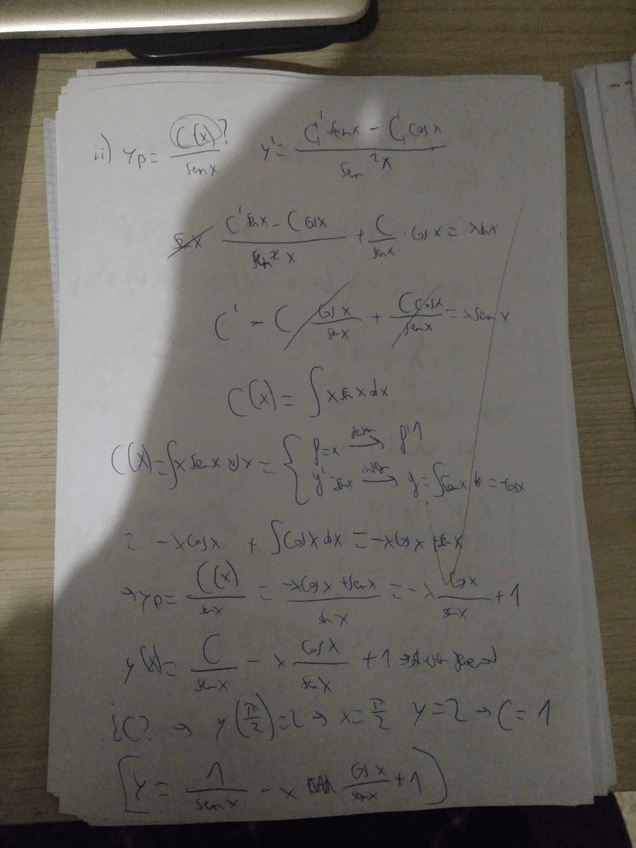 ii) yp = C(x)? / sen x    y' = (C' sen x - C cos x) / sen²x
sen x (C' sen x - C cos x) / sen² x + C / sen x · cos x = x sen x
C' - C cos x / sen x + C cos x / sen x = x sen x
C(x) = ∫ x sen x dx
C(x) = ∫ x sen x dx = { f = x → f' 1
g' = sen x → g = ∫ sen x dx = -cos x
= -x cos x + ∫ cos x dx = -x cos x + sen x
→ yp = C(x) / sen x = (-x cos x + sen x) / sen x = -x cos x / sen x + 1
y(x) = C / sen x - x cos x / sen x + 1 →
¿C? → y(π/2) = 2 → x = π/2 y = 2 → C = 1
[y = 1 / sen x - x cos x / sen x + 1]